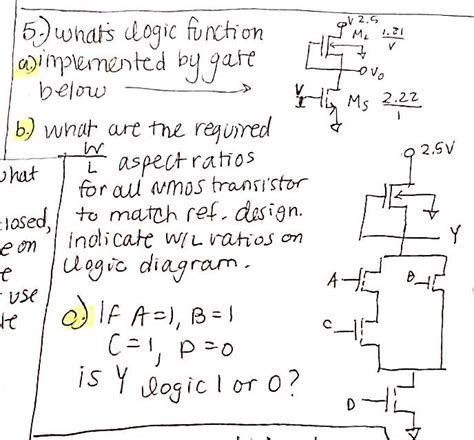 5.) what's logic function
a) implemented by gate
below
b.) what are the required
W/L aspect ratios
for all NMOS transistor
to match ref. design.
Indicate W/L ratios on
logic diagram.
c.) If A=1, B=1
C=1, D=0
is Y logic 1 or 0?
V 2.5
ML 1.81
Vo
MS 2.22/1
2.5V
Y
A
B
C
D
what
closed,
e on
e
use
te